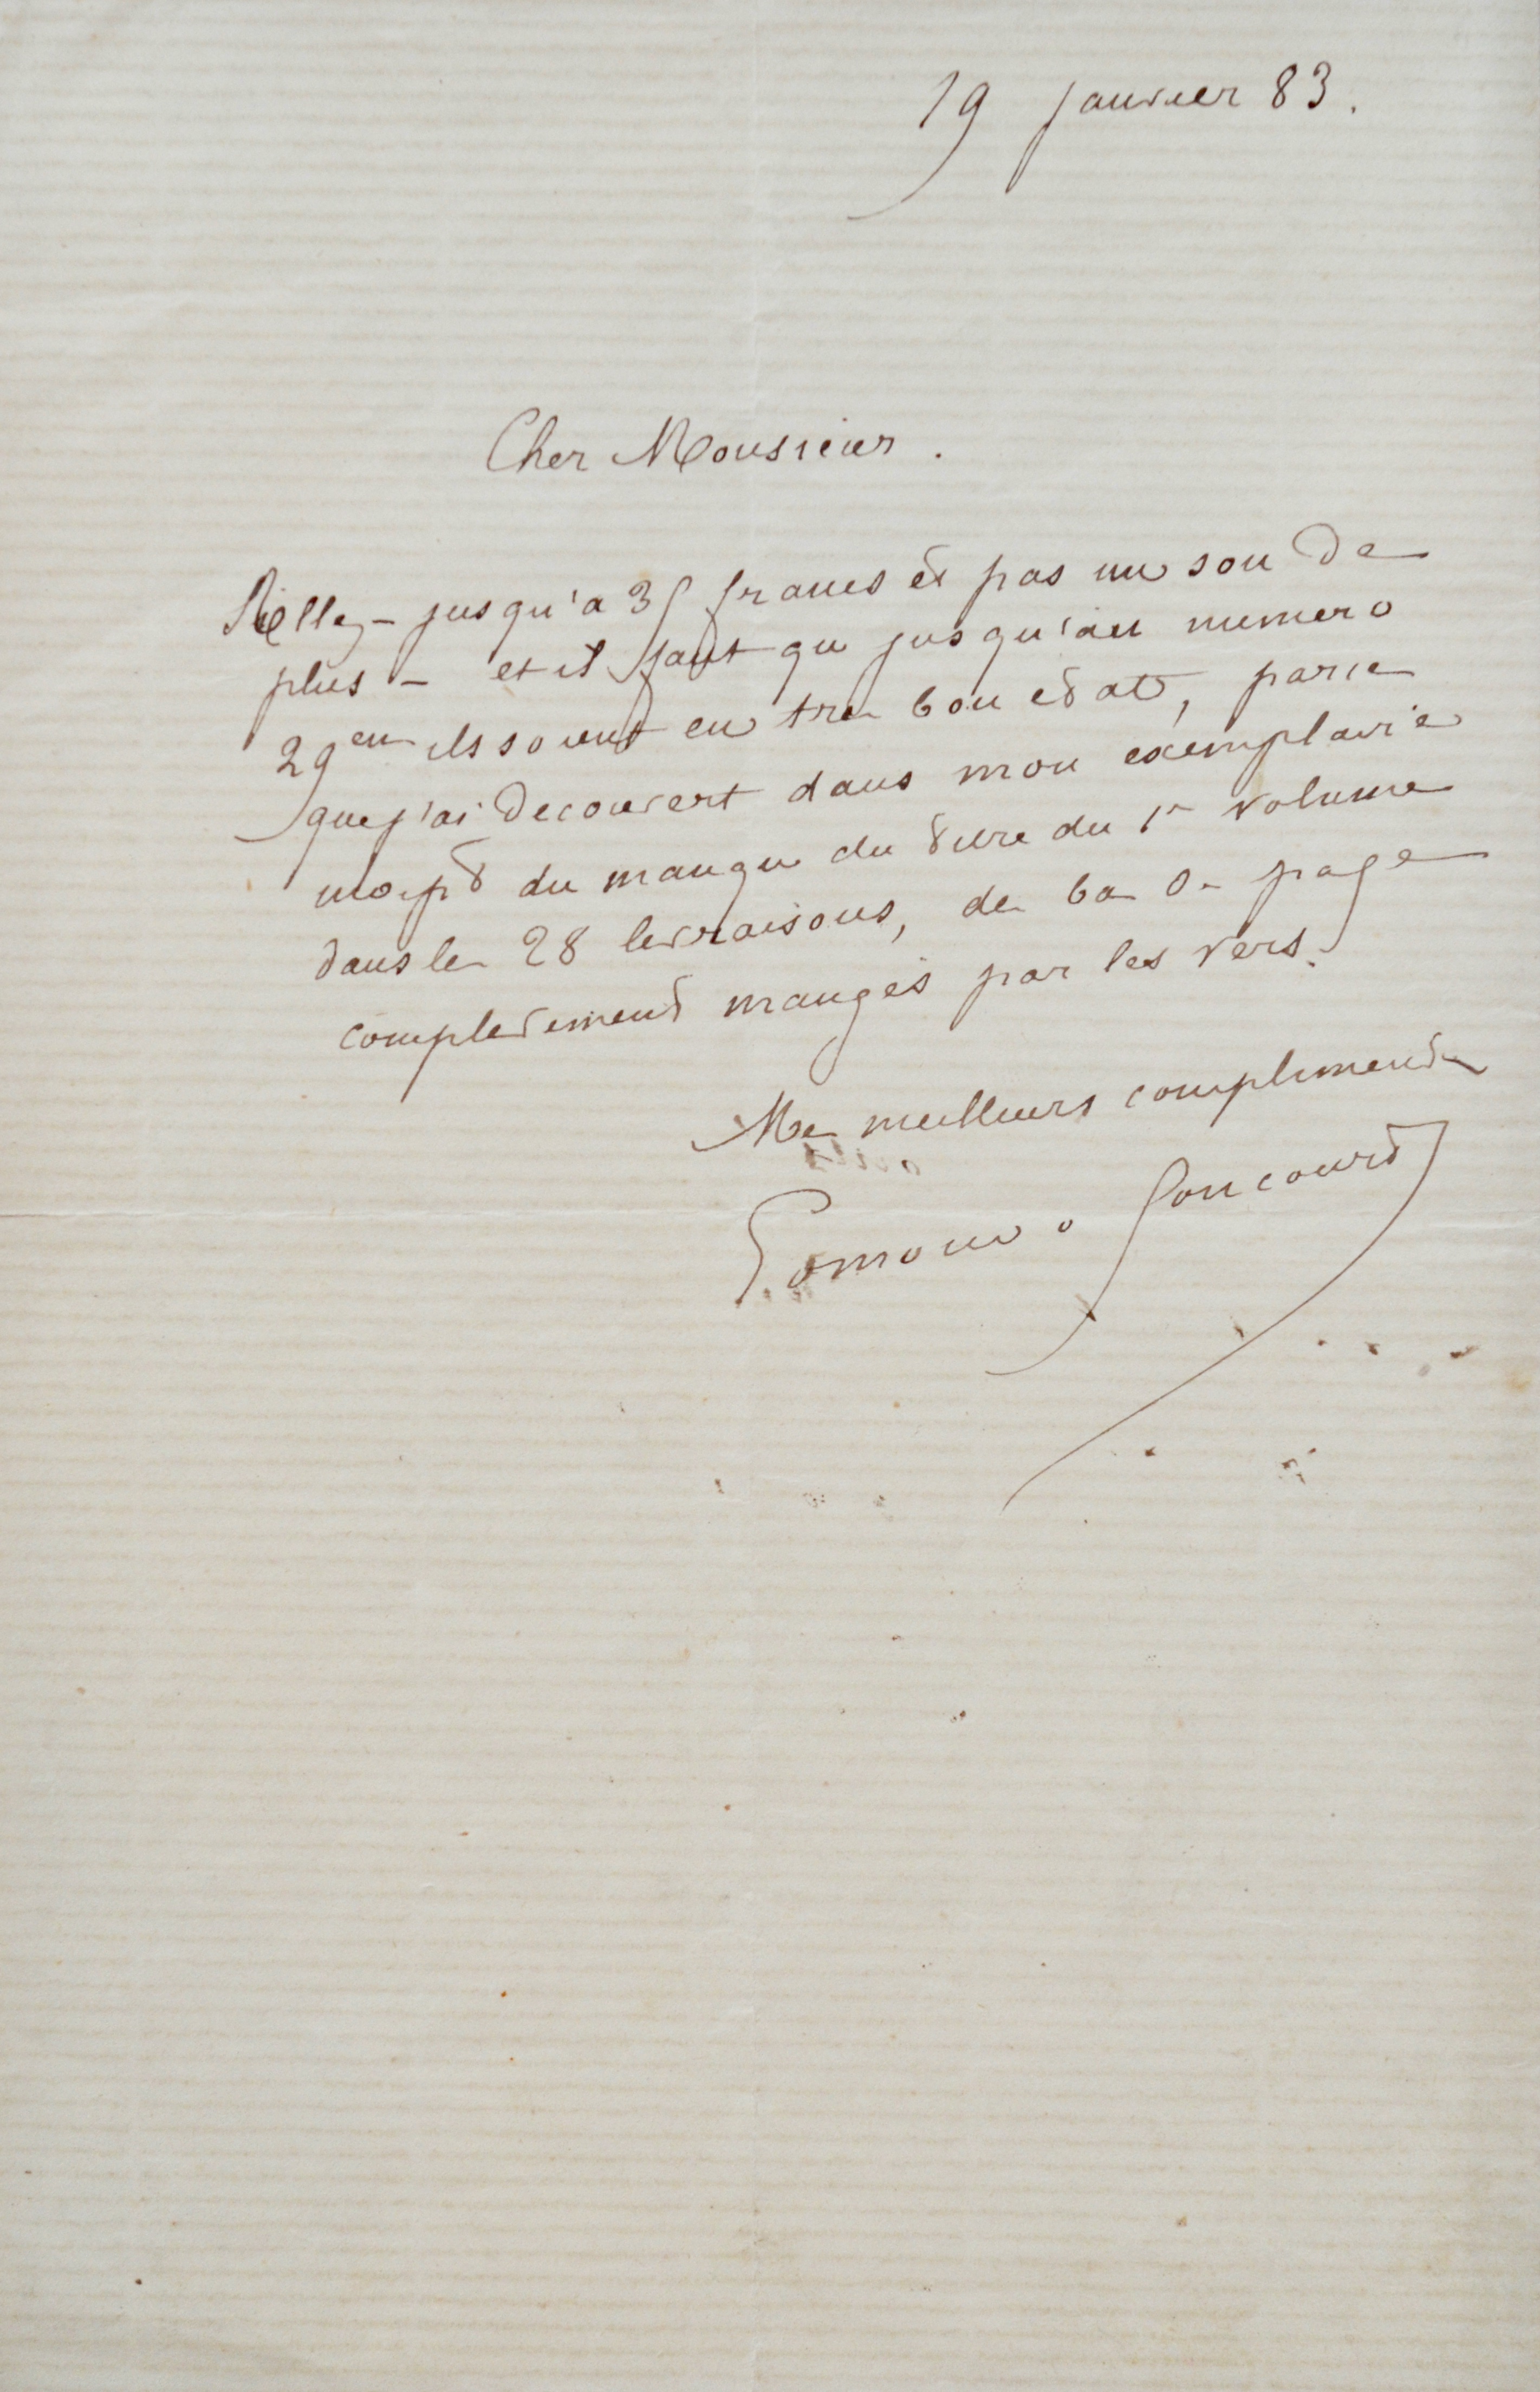 19 janvier 83.
Cher Monsieur.
jusqu'a 35 francs et pas un sou de
plus - et il faut qu jusqu'au numero
29em ils soient en tres bon etat, parce
que j'ai decouvert dans mon exemplaire
du manqu du titre du 1r volume
dans les 28 livraisons, des bas de page
completement mangés par les vers.
Mes meilleurs compliments
Edmond de Goncourt